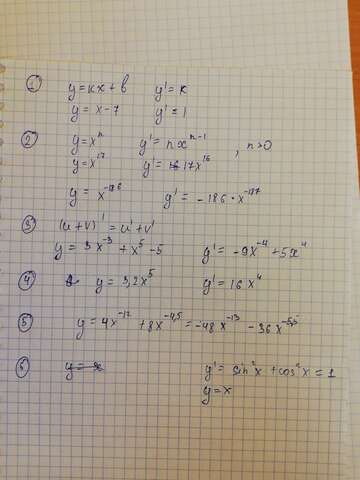 1 y = kx + b y' = k
y = x - 7 y' = 1
2 y = xⁿ y' = nxⁿ⁻¹, n > 0
y = x¹⁷ y' = 17x¹⁶
y = x⁻¹⁸⁶ y' = -186 · x⁻¹⁸⁷
3 (u + v)' = u' + v'
y = 3x⁻³ + x⁵ - 5 y' = -9x⁻⁴ + 5x⁴
4 y = 3,2x⁵ y' = 16x⁴
5 y = 4x⁻¹² + 8x⁻⁴,⁵ = -48x⁻¹³ - 36x⁻⁵,⁵
6 y' = sin²x + cos²x = 1
y = x